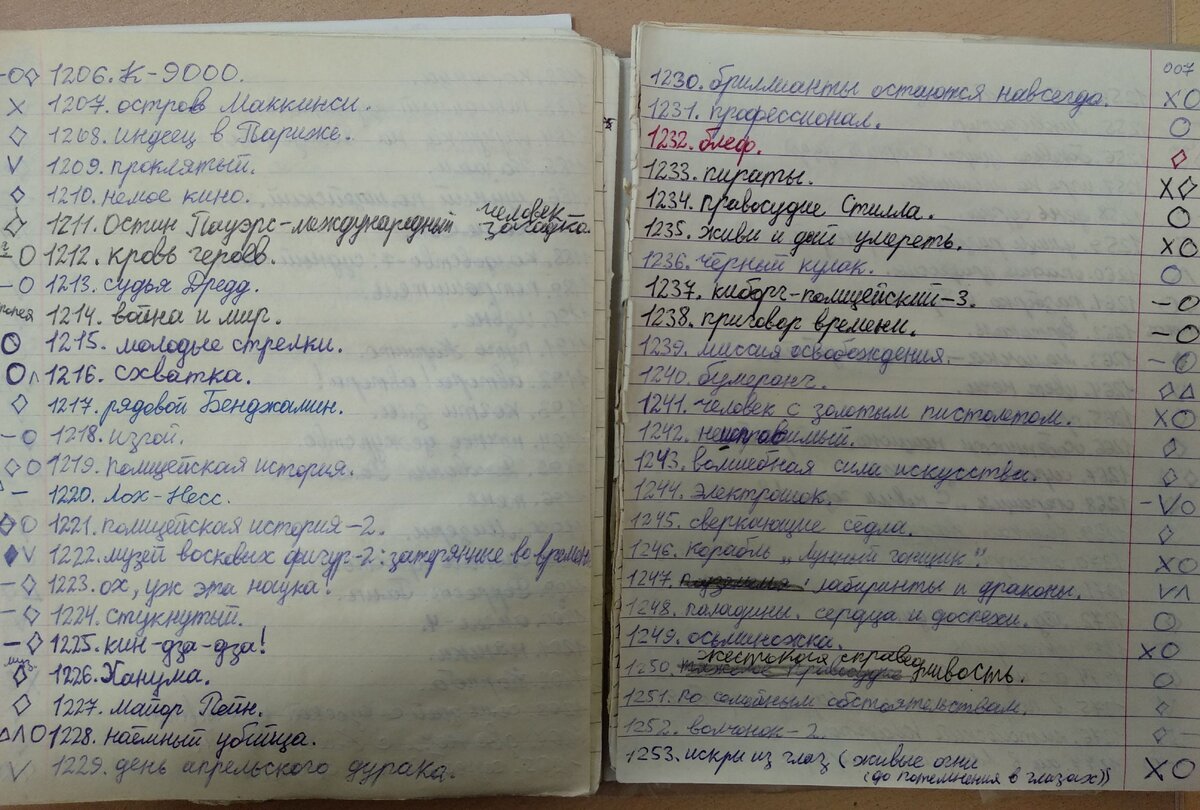 1206. К-9000.
1207. остров Маккинси.
1208. индеец в Париже.
1209. проклятый.
1210. немое кино.
1211. Остин Пауэрс-международный человек загадка.
1212. кровь героев.
1213. судья Дредд.
1214. война и мир.
1215. молодые стрелки.
1216. схватка.
1217. рядовой Бенджамин.
1218. изгой.
1219. полицейская история.
1220. Лох-Несс.
1221. полицейская история-2.
1222. музей восковых фигур-2: затерянные во времени
1223. ох, уж эта наука!
1224. стукнутый.
1225. кин-дза-дза!
1226. Ханума.
1227. майор Пейн.
1228. наёмный убийца.
1229. день апрельского дурака.
007
1230. бриллианты остаются навсегда.
1231. профессионал.
1232. блеф.
1233. пираты.
1234. правосудие Стилла.
1235. живи и дай умереть.
1236. чёрный кулак.
1237. киборг-полицейский-3.
1238. приговор времени.
1239. миссия освобождения.
1240. бумеранг.
1241. человек с золотым пистолетом.
1242. неисправимый.
1243. волшебная сила искусства.
1244. электрошок.
1245. сверкающие сёдла.
1246. корабль „Лунный гонщик".
1247. лабиринты и драконы.
1248. паладины. сердца и доспехи.
1249. осьминожка.
1250. жестокая справедливость.
1251. по семейным обстоятельствам.
1252. волчонок-2.
1253. искры из глаз (живые огни
(до потемнения в глазах))